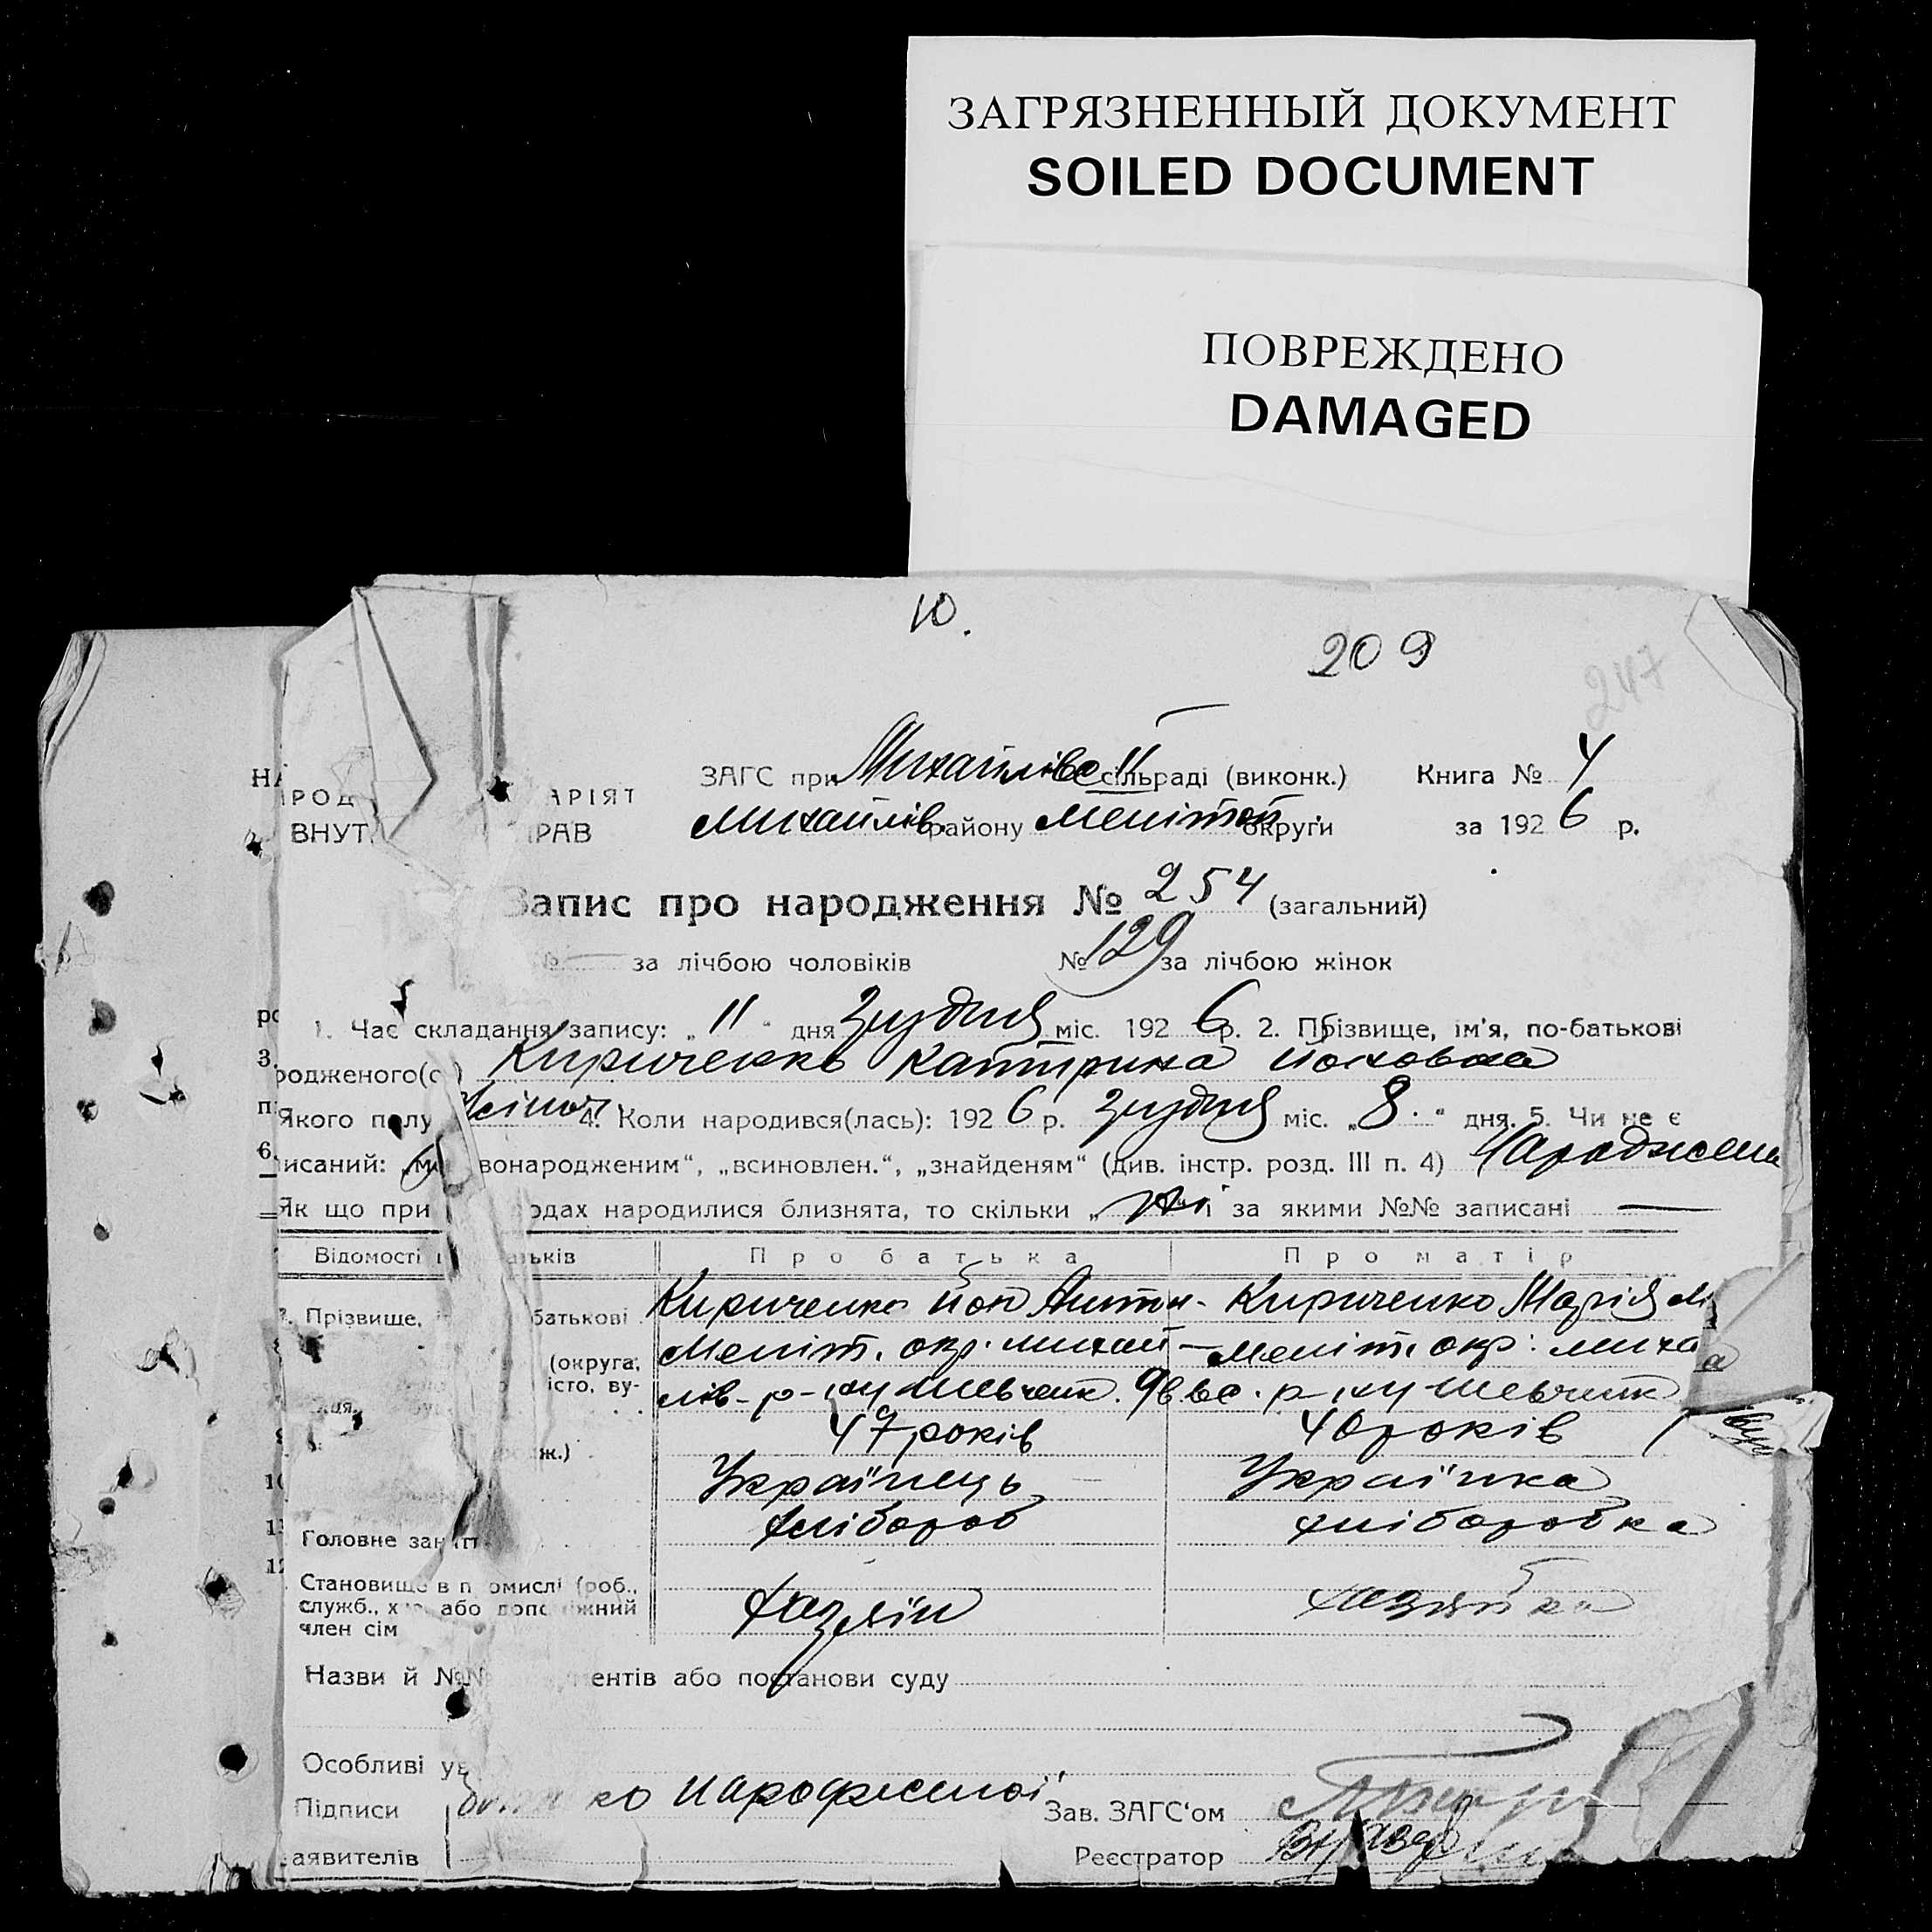 ЗАГРЯЗНЕННЫЙ ДОКУМЕНТ
SOILED DOCUMENT
ПОВРЕЖДЕНО
DAMAGED
10.
209
247
ЗАГС при сільраді (виконк.) Книга № 4
АРІЯТ
ВНУТ РАВ Михайлів. району Меліտոп. округи за 1926 р.
Запис про народження № 254 (загальний)
№ — за лічбою чоловіків № 129 за лічбою жінок
1. Час складання запису: „11" дня Грудня міс. 1926 р. 2. Прізвище, ім'я, по-батькові
родженого(ої) Кириченко Катирина Йоновна
Якого полу Жіноч. 4. Коли народився(лась): 1926 р. Грудня міс. „8." дня. 5. Чи не є
исаний: „м вонародженим", „всиновлен.", „знайденям" (див. інстр. розд. III п. 4)
Як що при одах народилися близнята, то скільки „ " і за якими №№ записані —
Відомості ьків Про батька Про матір
Прізвище, батькові Кириченко Йон Антон- Кириченко Марія
(округа, Меліт. окр. Михай- Меліт. окр: Миха
істо, ву- лів- р-ну Шевченк. р-ну Шевченк
ж.) 47 років 40 років
Українець Українка
Головне занятт хлібороб хліборобка
Становище в промислі (роб.,
служб., х або допоміжний хазяїн хазяйка
член сім
Назви й №№ ентів або постанови суду
Особливі ув
Підписи ко народженої Зав. ЗАГС'ом
аявителів Реєстратор